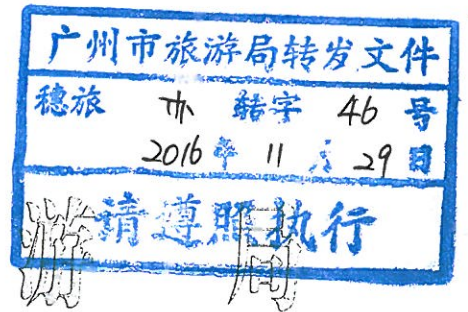 广州市旅游局转发文件
穗旅 办 转字 46 号
2016 年 11 月 29 日
请遵照执行
游 局